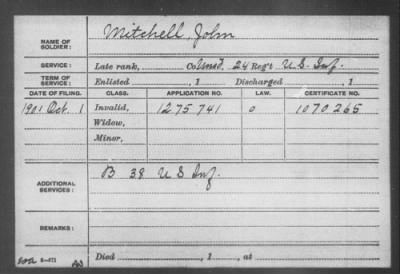 Mitchell, John
NAME OF SOLDIER:
SERVICE: Late rank, Co Unas'd, 24 Reg't U.S. Inf.
TERM OF SERVICE: Enlisted , 1 Discharged , 1
DATE OF FILING. CLASS. APPLICATION NO. LAW. CERTIFICATE NO.
1901 Oct. 1 Invalid, 1275741 0 1070265
Widow,
Minor,
ADDITIONAL SERVICES: B 38 U S Inf.
REMARKS:
Died , 1 , at